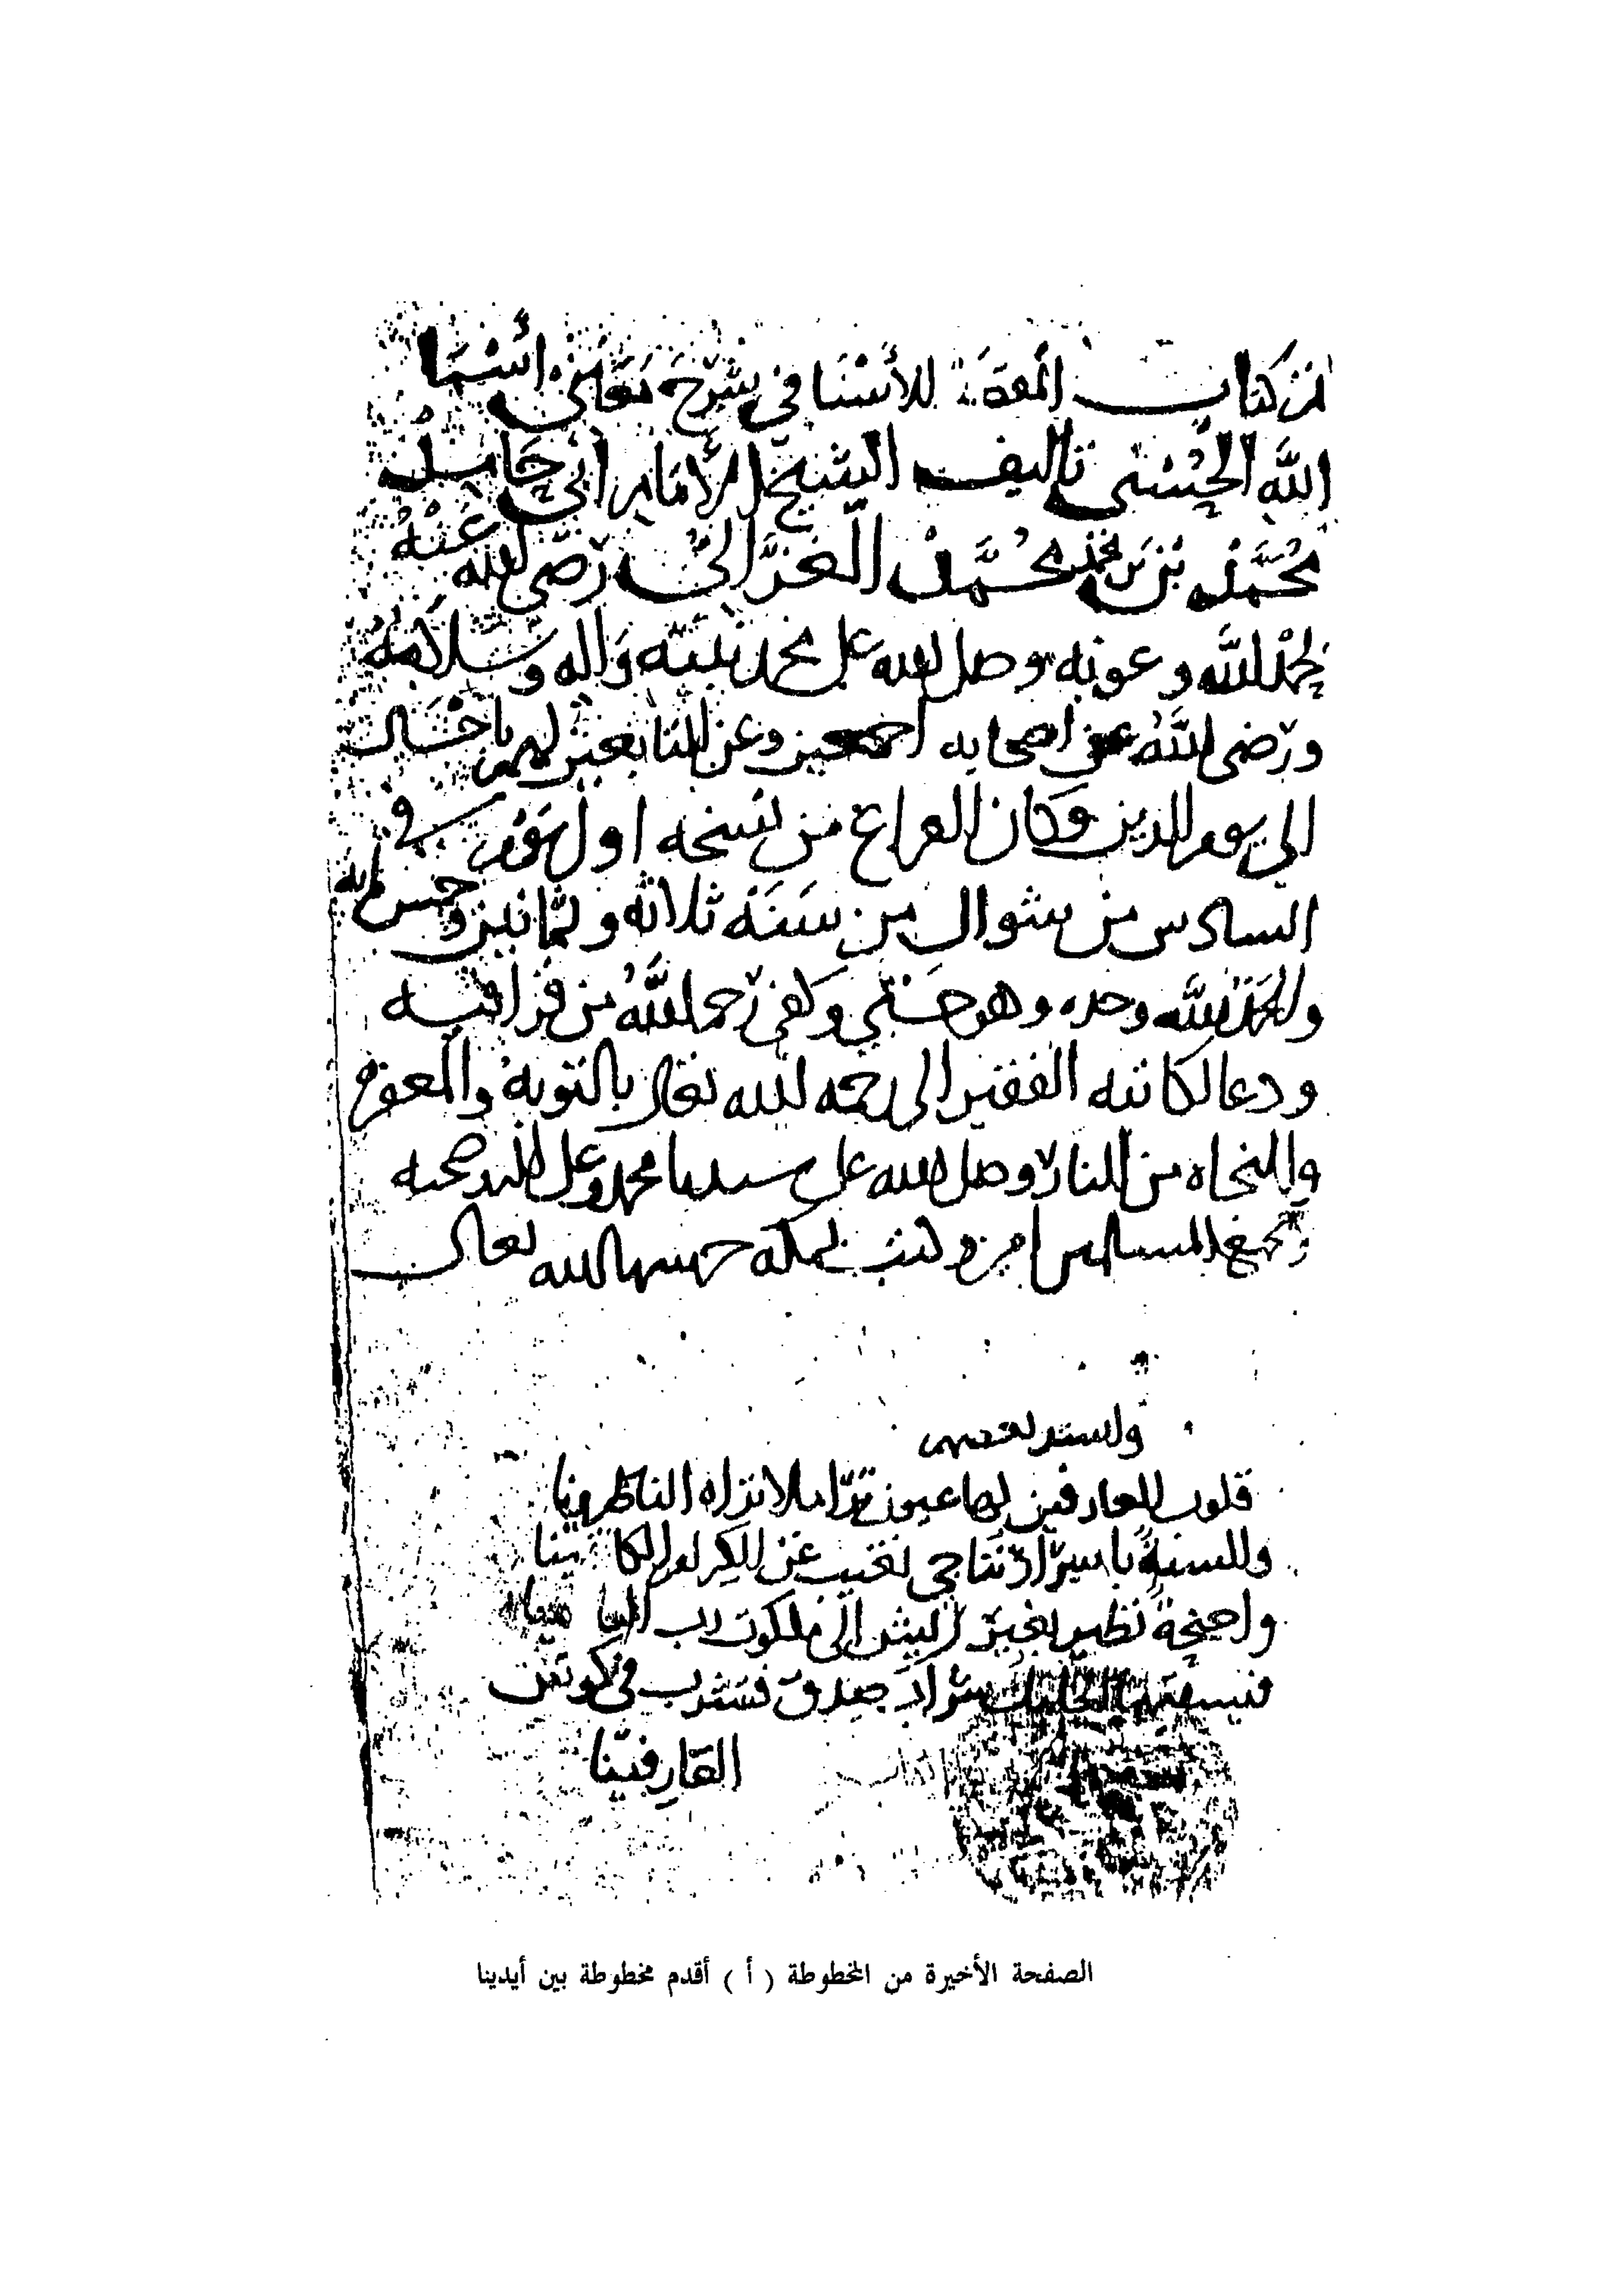 كتاب المقصد الأسنا في شرح معاني أسما
الله الحسنى تأليف الشيخ الأمام أبي حامد
محمد بن محمد بن محمد الغزالي رضي الله عنه
بحمد الله وعونه وصلى الله على محمد نبيه واله وسلامه
ورضي الله عن اصحابه اجمعين وعن التابعين لهم باحسان
الى يوم الدين وكان الفراغ من نسخه اول يوم في
السادس من شوال من سنة ثلاثة وثمانين وخمس مايه
والحمد لله وحده وهو حسبي وكفى رحم الله من قرا فيه
ودعا لكاتبه الفقير الى رحمه الله تعالى بالتوبه والمغفره
والنجاه من النار وصلى الله على سيدنا محمد وعلى اله وصحبه
وجميع المسلمين امين وكتب بمكه حرسها الله تعالى
ولسند بعضهم
قلوب العارفين لها عيون ترا ما لا تراه الناظرونا
والسنة باسرار تناجي تغيب عن الكرام الكاتبينا
واجنحة تطير بغير ريش الى ملكوت رب
شراب صدق فتشرب في كوس
العارفينا
الصفحة الأخيرة من المخطوطة ( أ ) أقدم مخطوطة بين أيدينا